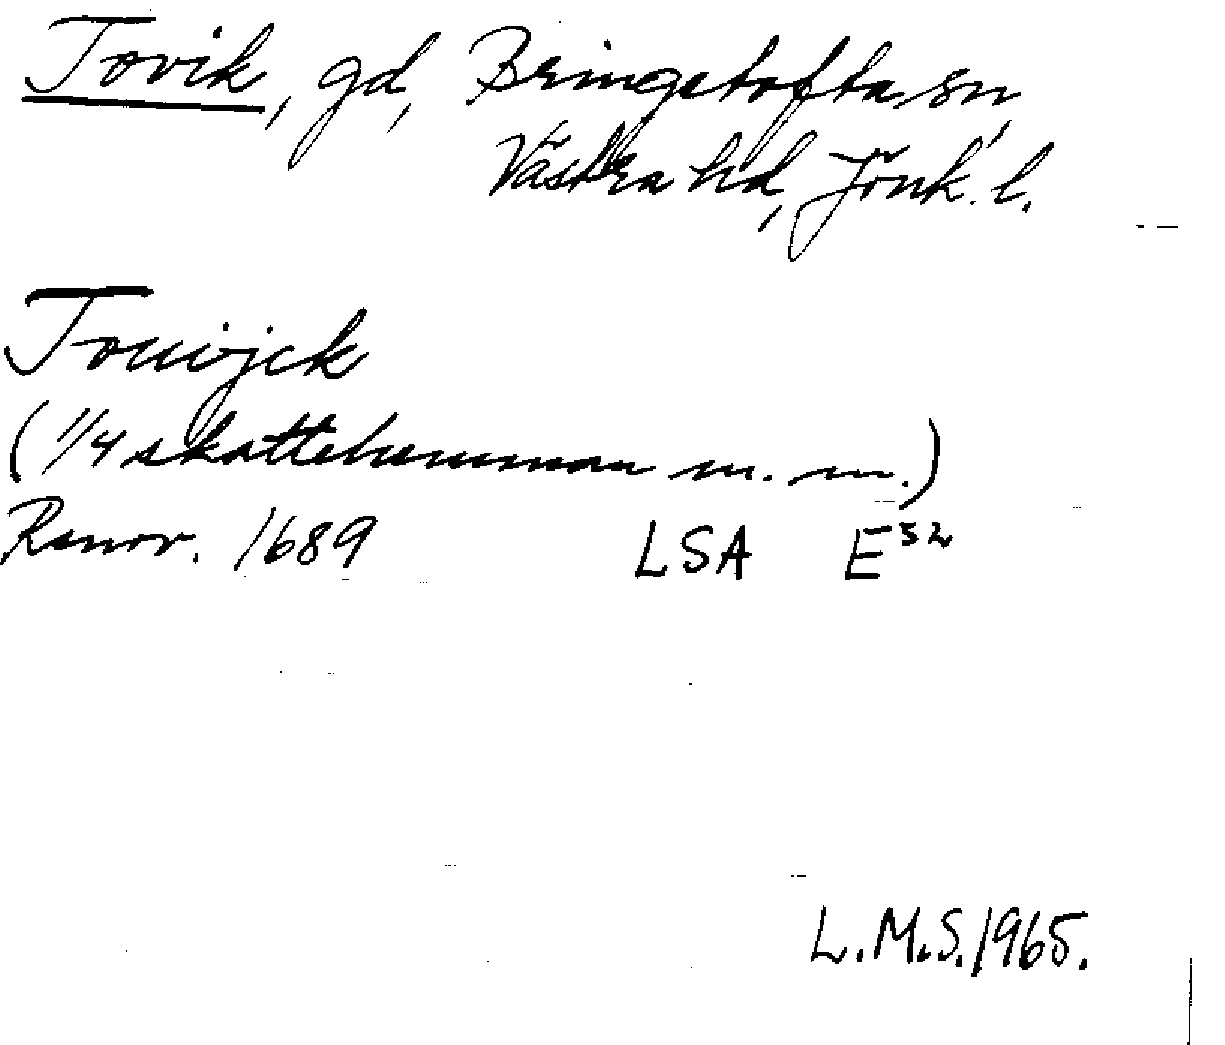 Tovik, gd, Bringetofta sn,
Västra hd, Jönk. l.
Touijck
(1/4 skattehemman m. m.)
Renov. 1689 LSA E32
L.M.S. 1965.